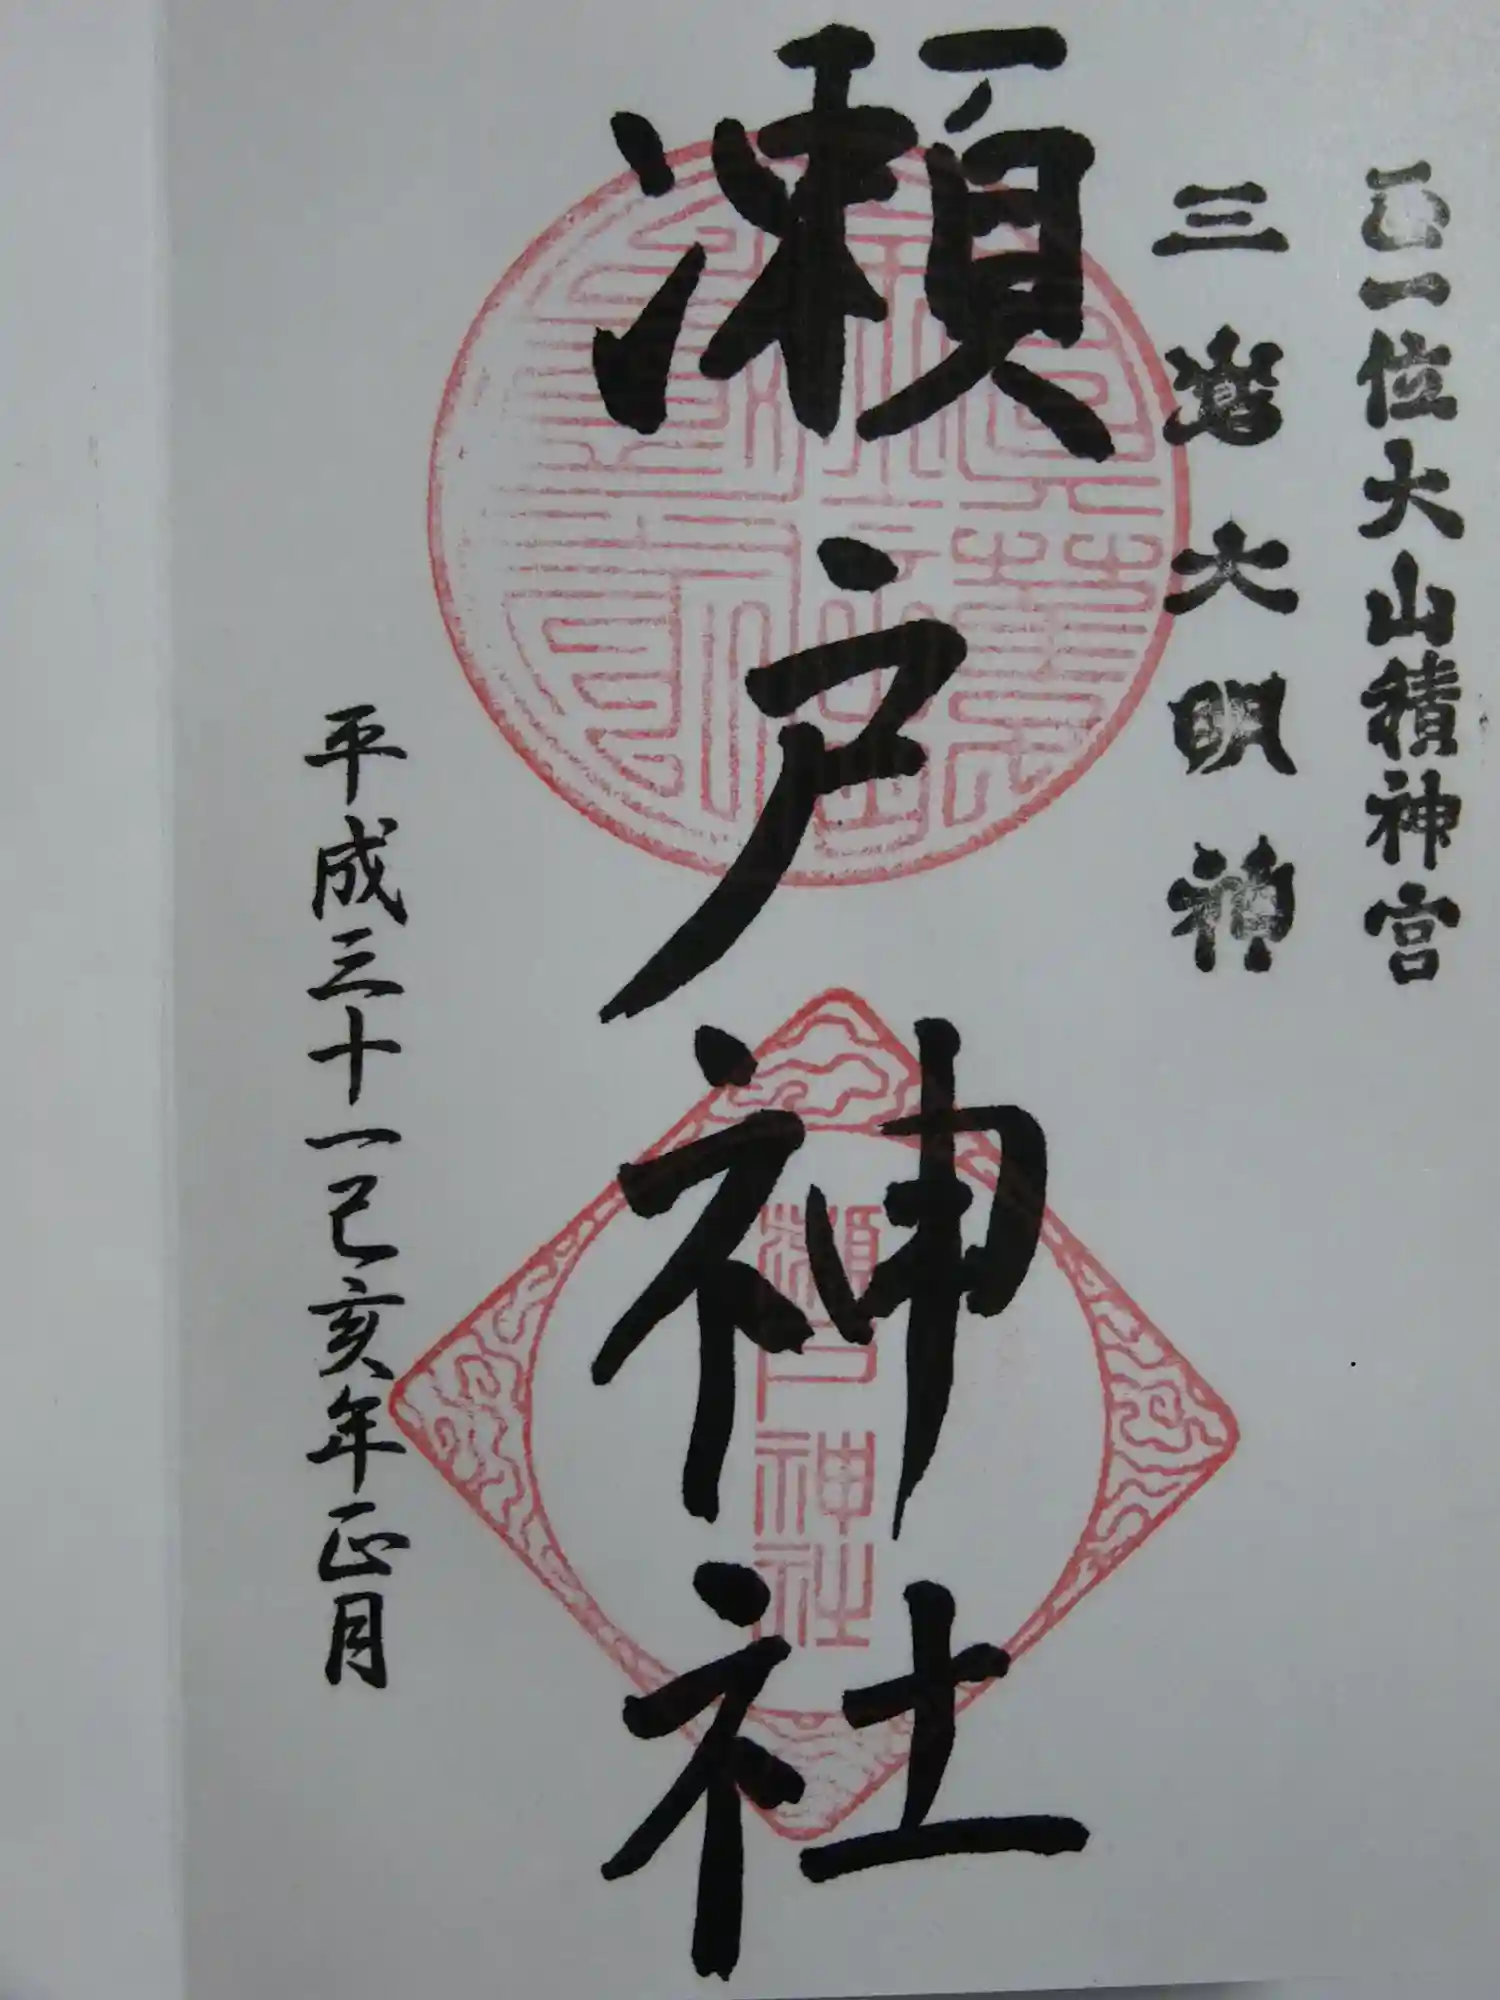 正一位大山積神宮
三嶌大明神
瀬戸神社
瀬戸神社
平成三十一己亥年正月